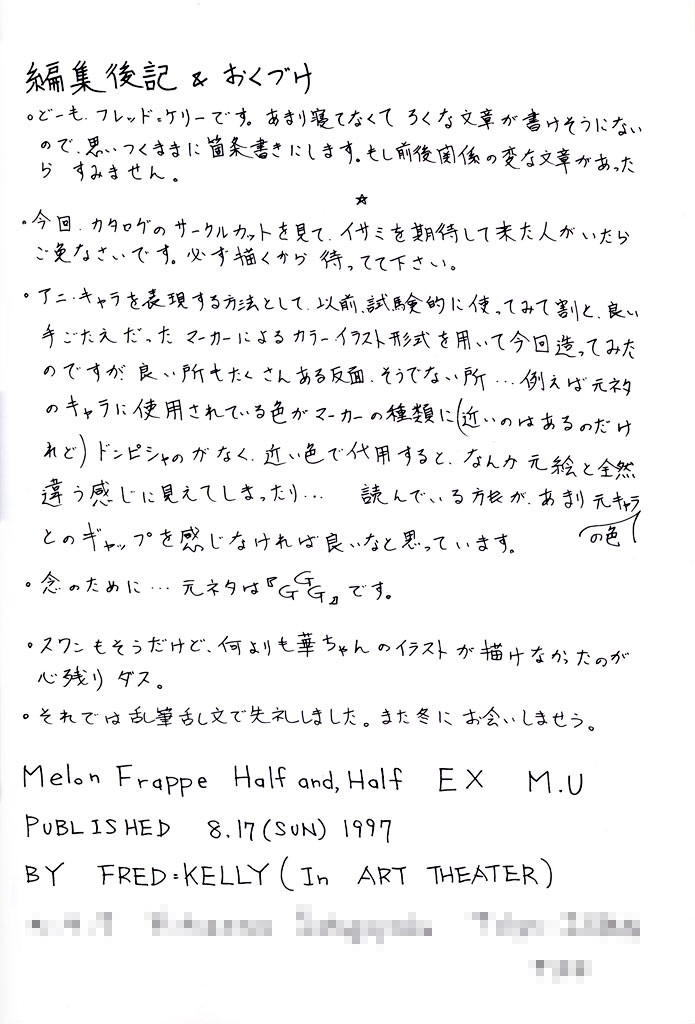 編集後記 & おくづけ
・どーも、フレッド=ケリーです。あまり寝てなくて ろくな文章が書けそうにない
ので、思いつくままに箇条書きにします。もし前後関係の変な文章があった
ら すみません。
☆
・今回、カタログのサークルカットを見て、イサミを期待して来た人がいたら
ご免なさいです。必ず描くから 待ってて下さい。
・アニ・キャラを表現する方法として、以前、試験的に使ってみて割と、良い
手ごたえだった マーカーによるカラーイラスト形式を用いて今回造ってみた
のですが、良い所もたくさんある反面、そうでない所…例えば元ネタ
のキャラに使用されている色がマーカーの種類に(近いのはあるのだけ
れど)ドンピシャのがなく、近い色で代用すると、なんか元絵と全然
違う感じに見えてしまったり… 読んでいる方が、あまり元キャラ
の色
とのギャップを感じなければ良いなと思っています。
・念のために…元ネタは『GGG』です。
・スワンもそうだけど、何よりも華ちゃんのイラストが描けなかったのが
心残りダス。
・それでは乱筆乱文で失礼しました。また冬にお会いしませう。
Melon Frappe Half and, Half EX M.U
PUBLISHED 8.17(SUN) 1997
BY FRED=KELLY(In ART THEATER)